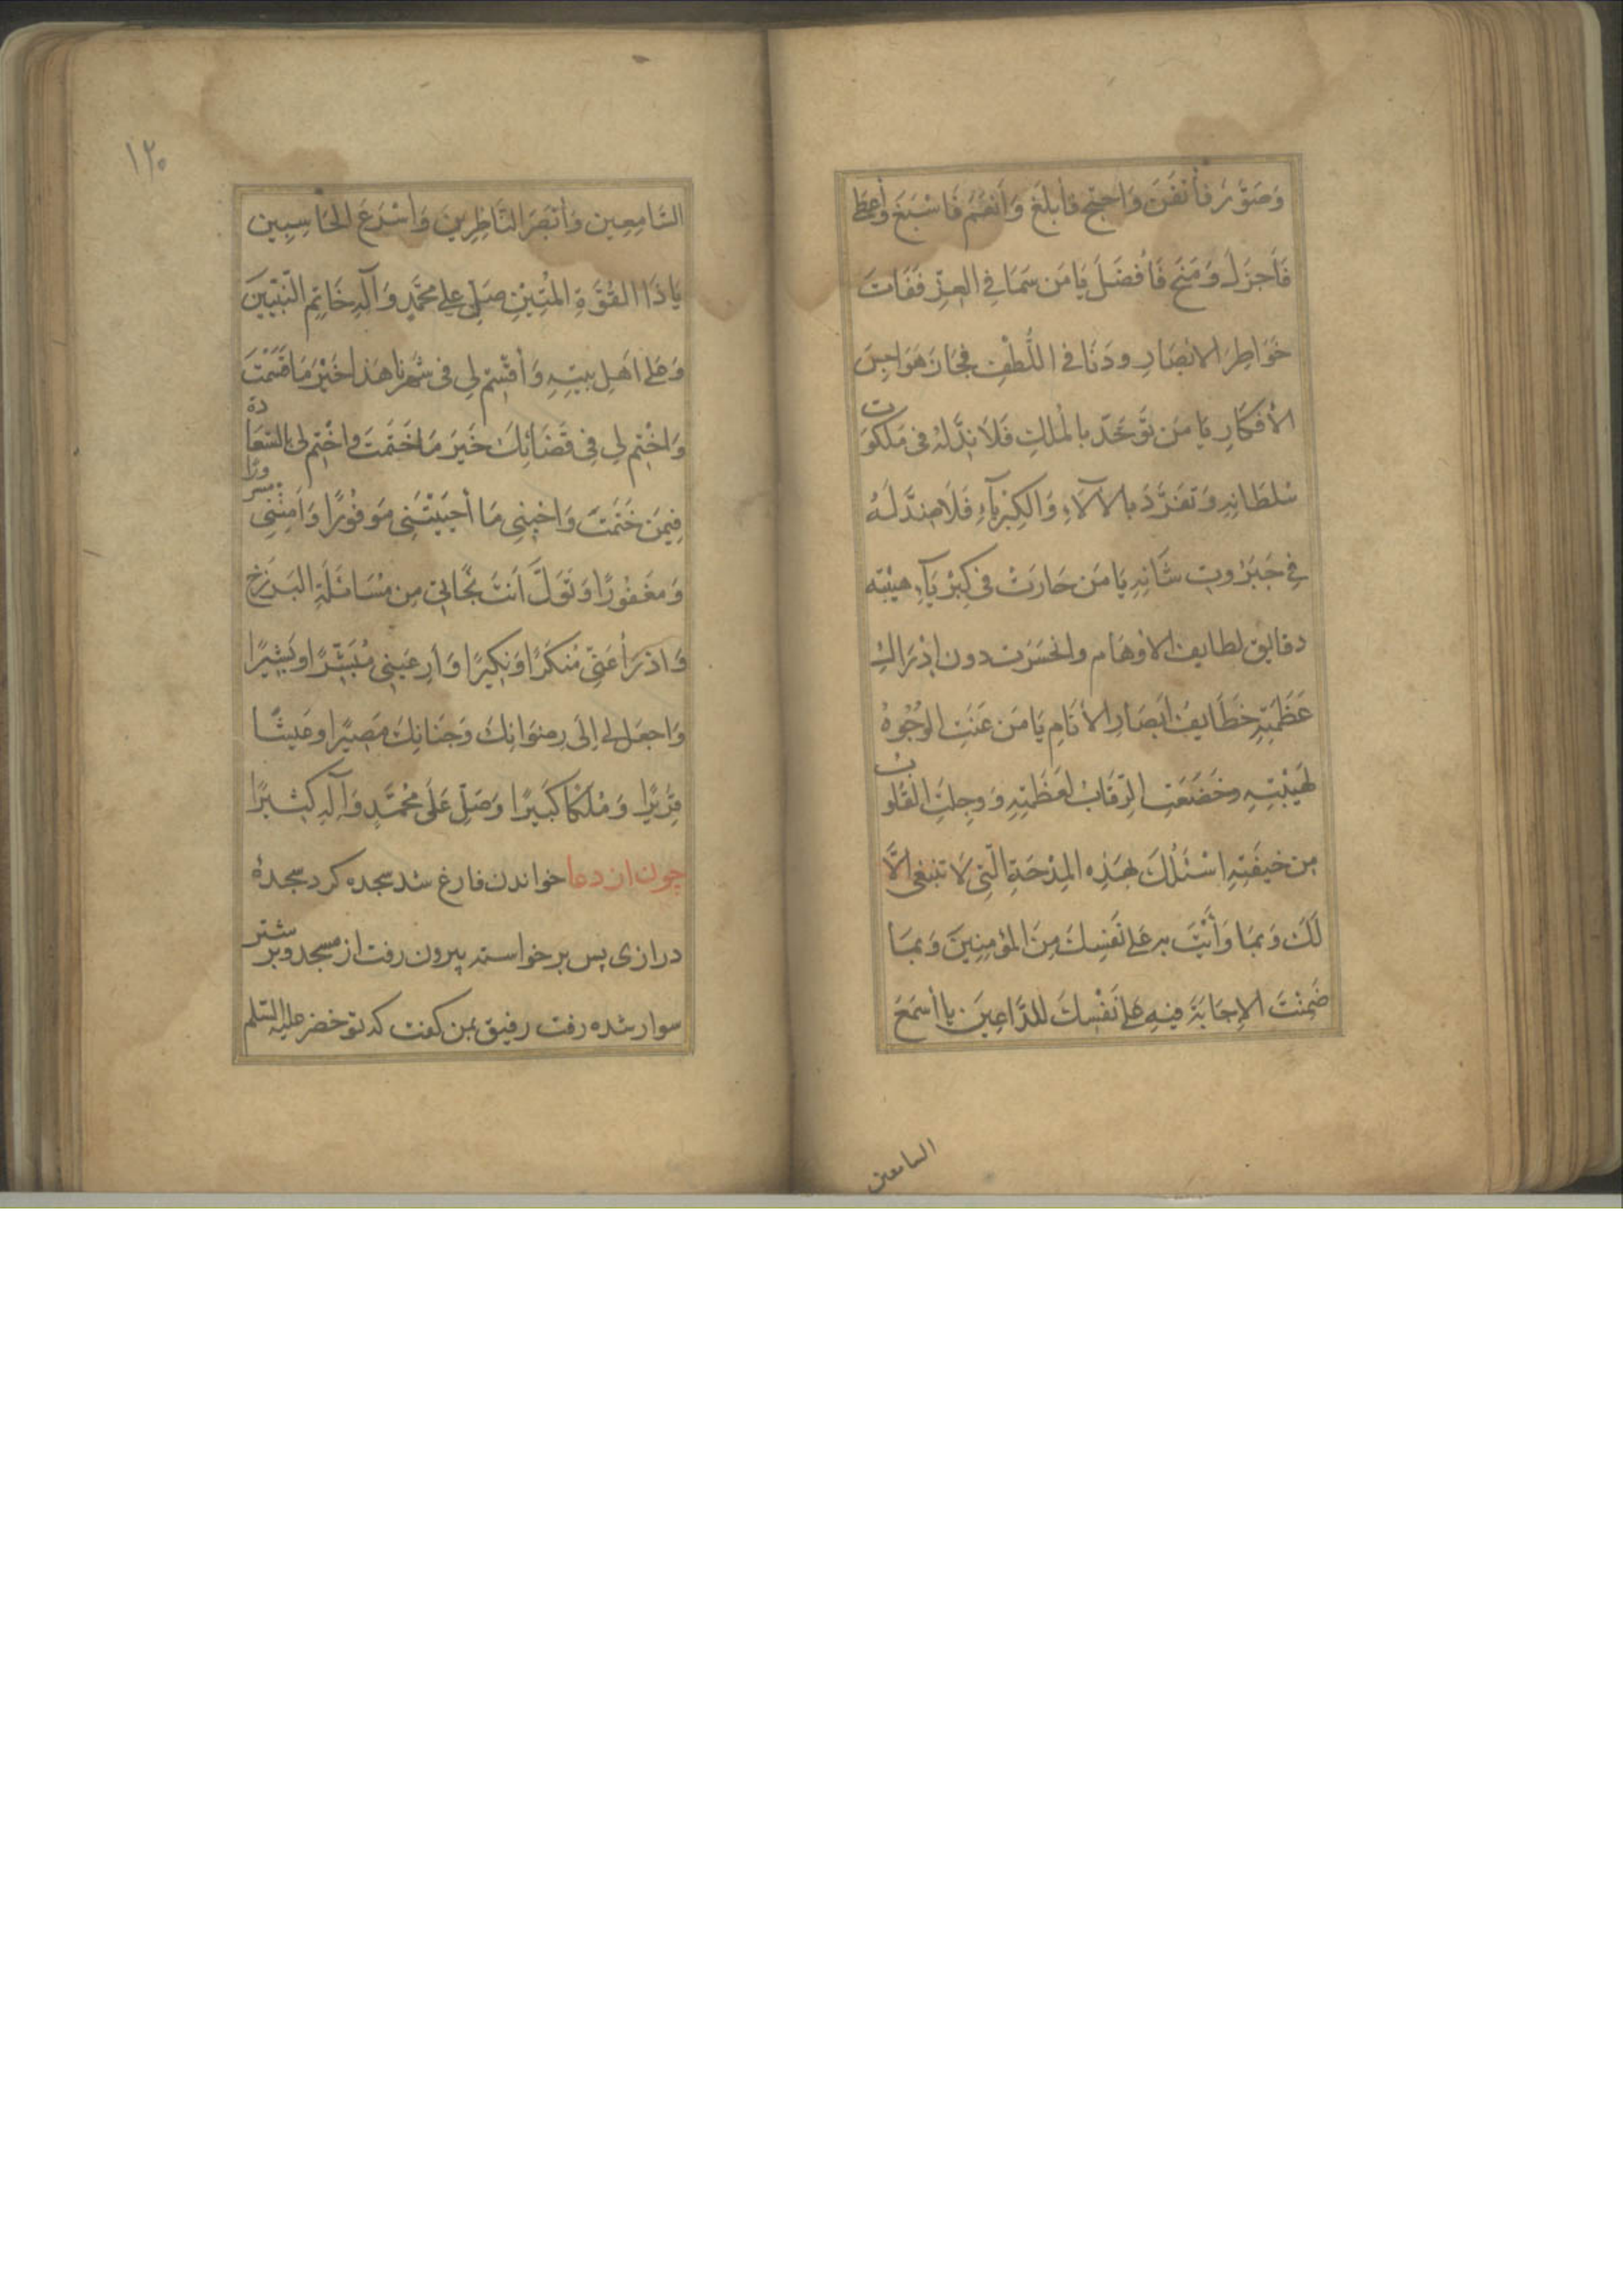 وَصَوَّرَ فَأَتْقَنَ وَاحتَجَّ فَأَبلَغَ وَأَنعَمَ فَاَسْبَغَ وَأَعطَى
فَاَجزَلَ وَمَنَحَ فَاَفضَلَ يَامَن سَمَا فِي العِزِّ فَفَاتَ
خَوَاطِرَ الابصَارِ ودَنَا فی اللُّطْفِ فَجَازَ هَوَاجِسَ
الأَفكَارِ يَا مَن تَوَحَّدَ بالمُلكِ فَلَا نِدَّلَهُ فی مَلَكُوتِ
سُلطَانِهِ وَتَفَرَّدَ بالآلَاءِ وَالكِبْرِيَآءِ فَلَا ضِدَّ لَهُ
فِي جَبَرُوتِ شَانِهِ يَا مَن حَارَتْ فی كِبْرِيَآءِ هيْبَتِه
دقايق لطايف الاوْهَام وانحَسَرَت دون اِدْرَاكِ
عَظَمَتِهِ خَطَايِفُ اَبصَارِ الأَنَامِ يَا مَن عَنَتِ الوُجُوهُ
لِهَيْبَتِهِ وخَضَعَتِ الرِّقَابُ لِعَظَمَتِهِ وَوجِلَتِ القُلُوبُ
مِن خيفَتِهِ اسْئَلُكَ بِهَذِهِ المِدْحَةِ الَّتِی لَا تنبَغی الَّا
لَكَ وَبِمَا وَأَيْتَ بِه عَلَى نَفسِكَ مِنَ المؤمِنِينَ وَبِمَا
ضَمِنْتَ الاِجَابَةَ فيهِ عَلَى نَفْسِكَ لِلدَّاعِينَ يا أَسمَعَ
السامعين
١٢٠
السَّامِعِين وَأَبْصَرَ النَّاظِرِينَ وَأَسْرَعَ الحَاسِبِين
يَا ذَا القُوَّةِ المَتِيْنِ صَلِّ عَلى مُحَمَّدٍ وَآلِهِ خَاتِمِ النَّبِيِّينَ
وَعَلى اَهلِ بيتِهِ وَأَقْسِم لِي فی شَهرِنا هَذا خَيْرَ مَا قَسَمْتَ
وَاخْتِم لِي فی قَضَائِكَ خَيرَ مَا خَتَمتَ واخْتِم لی بالسَّعَادة
فِيمَن خَتَمتَ وَاحيِنِی مَا أَحيَيْتَنِی مَوفُورًا وَاَمِتْنِی مسرورًا
وَمَغفُورًا وَتَوَلَّ اَنتَ نَجَاتِی مِن مُسَائَلَةِ البَرزَخِ
وَادْرَأ عَنِّی مُنكَرًا وَنَكِيرًا وَأَرِ عَينِی مُبَشِّرًا وبَشِيرًا
وَاجعَل لی اِلَى رِضوَانِكَ وَجِنَانِكَ مَصِيرًا وعَيشًا
قَرِيرًا وَمُلكًا كَبِيرًا وَصَلِّ عَلَى مُحَمَّدٍ وَآلِهِ كثيرًا
چون از دعا خواندن فارغ شد سجده کرد سجدۀ
درازی پس برخواسته بیرون رفت از مسجد وبر شتر
سوار شده رفت رفیق بمن کفت که تو خضر علیه السّلم